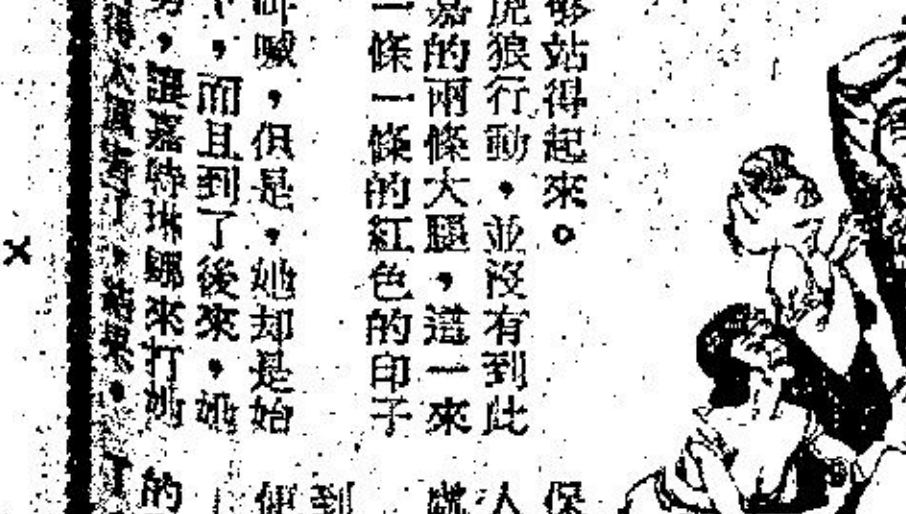 站得起來。
虎狼行動,並沒有到此
嘉的兩條大腿,這一來
一條一條的紅色的印子
叫喊,但是,她却是始
,而且到了後來,她
,讓嘉特琳娜來打她
得太厲害了,結果,
保
人
到
便
的
了